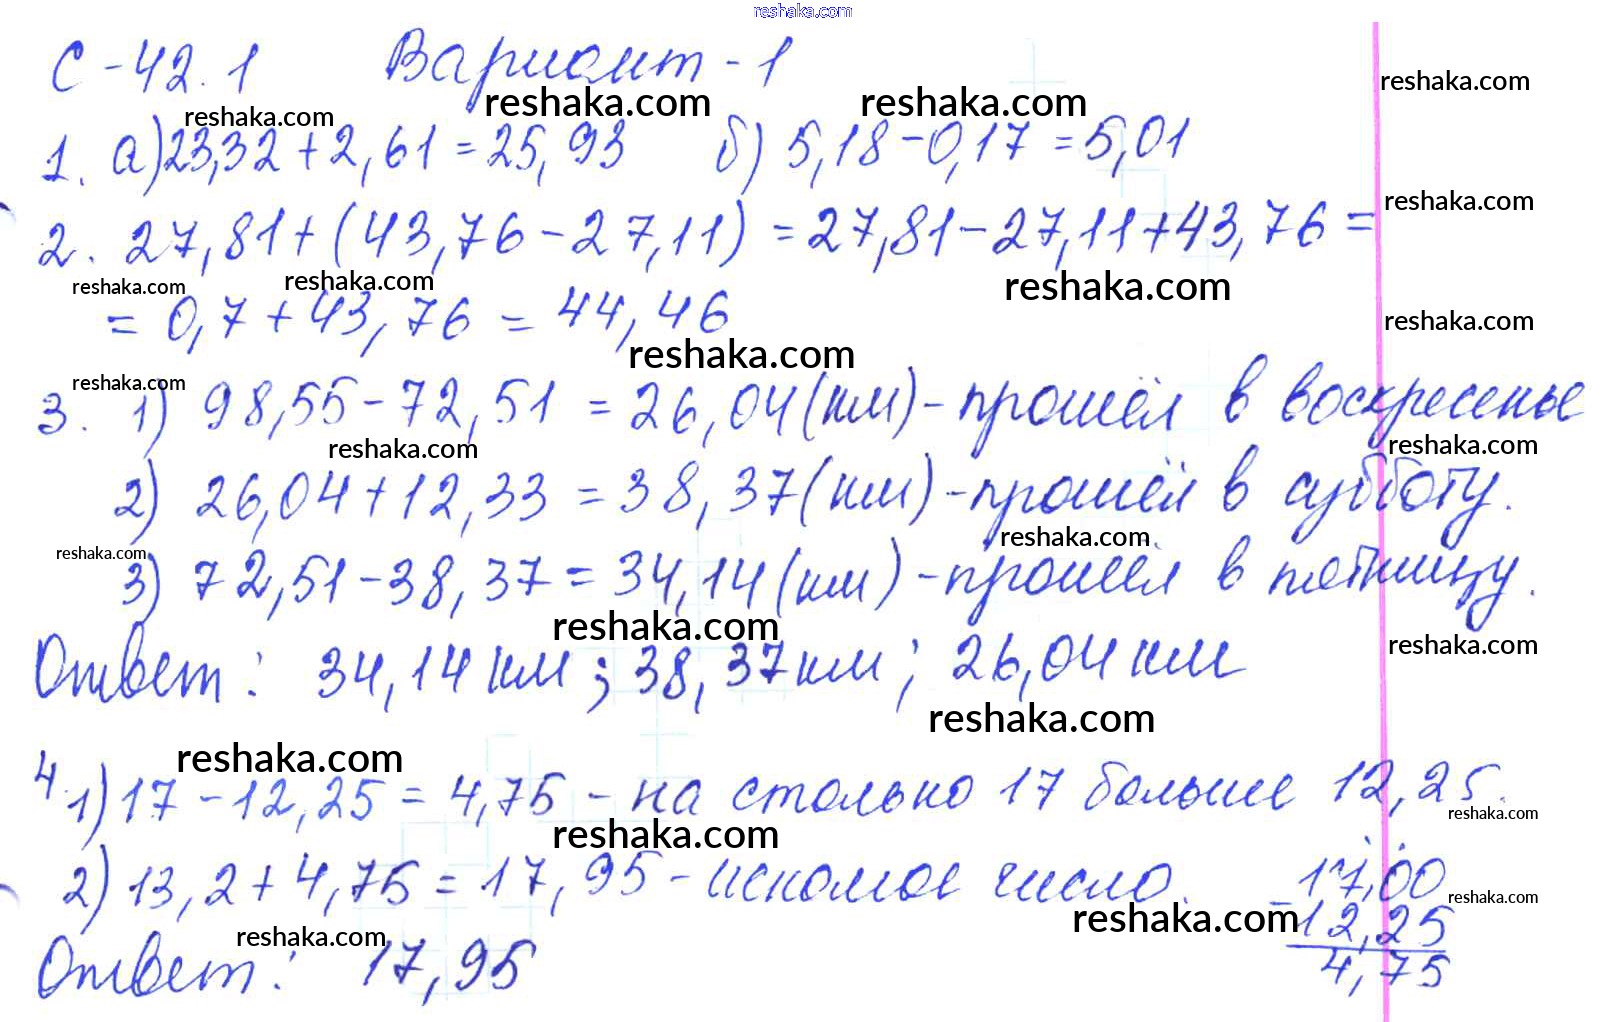 reshaka.com
С-42.1 Вариант-1
reshaka.com reshaka.com reshaka.com reshaka.com
1. а) 23,32+2,61=25,93 б) 5,18-0,17=5,01
reshaka.com
2. 27,81+(43,76-27,11)=27,81-27,11+43,76=
reshaka.com reshaka.com reshaka.com
=0,7+43,76=44,46
reshaka.com
reshaka.com
reshaka.com
3. 1) 98,55-72,51=26,04(км)-прошёл в воскресенье
reshaka.com reshaka.com
2) 26,04+12,33=38,37(км)-прошёл в субботу.
reshaka.com reshaka.com
3) 72,51-38,37=34,14(км)-прошёл в пятницу.
reshaka.com reshaka.com
Ответ: 34,14 км; 38,37 км; 26,04 км
reshaka.com
reshaka.com
4. 1) 17-12,25=4,75-на столько 17 больше 12,25.
reshaka.com reshaka.com
2) 13,2+4,75=17,95-искомое число.
17,00
reshaka.com
-12,25
reshaka.com reshaka.com
4,75
Ответ: 17,95